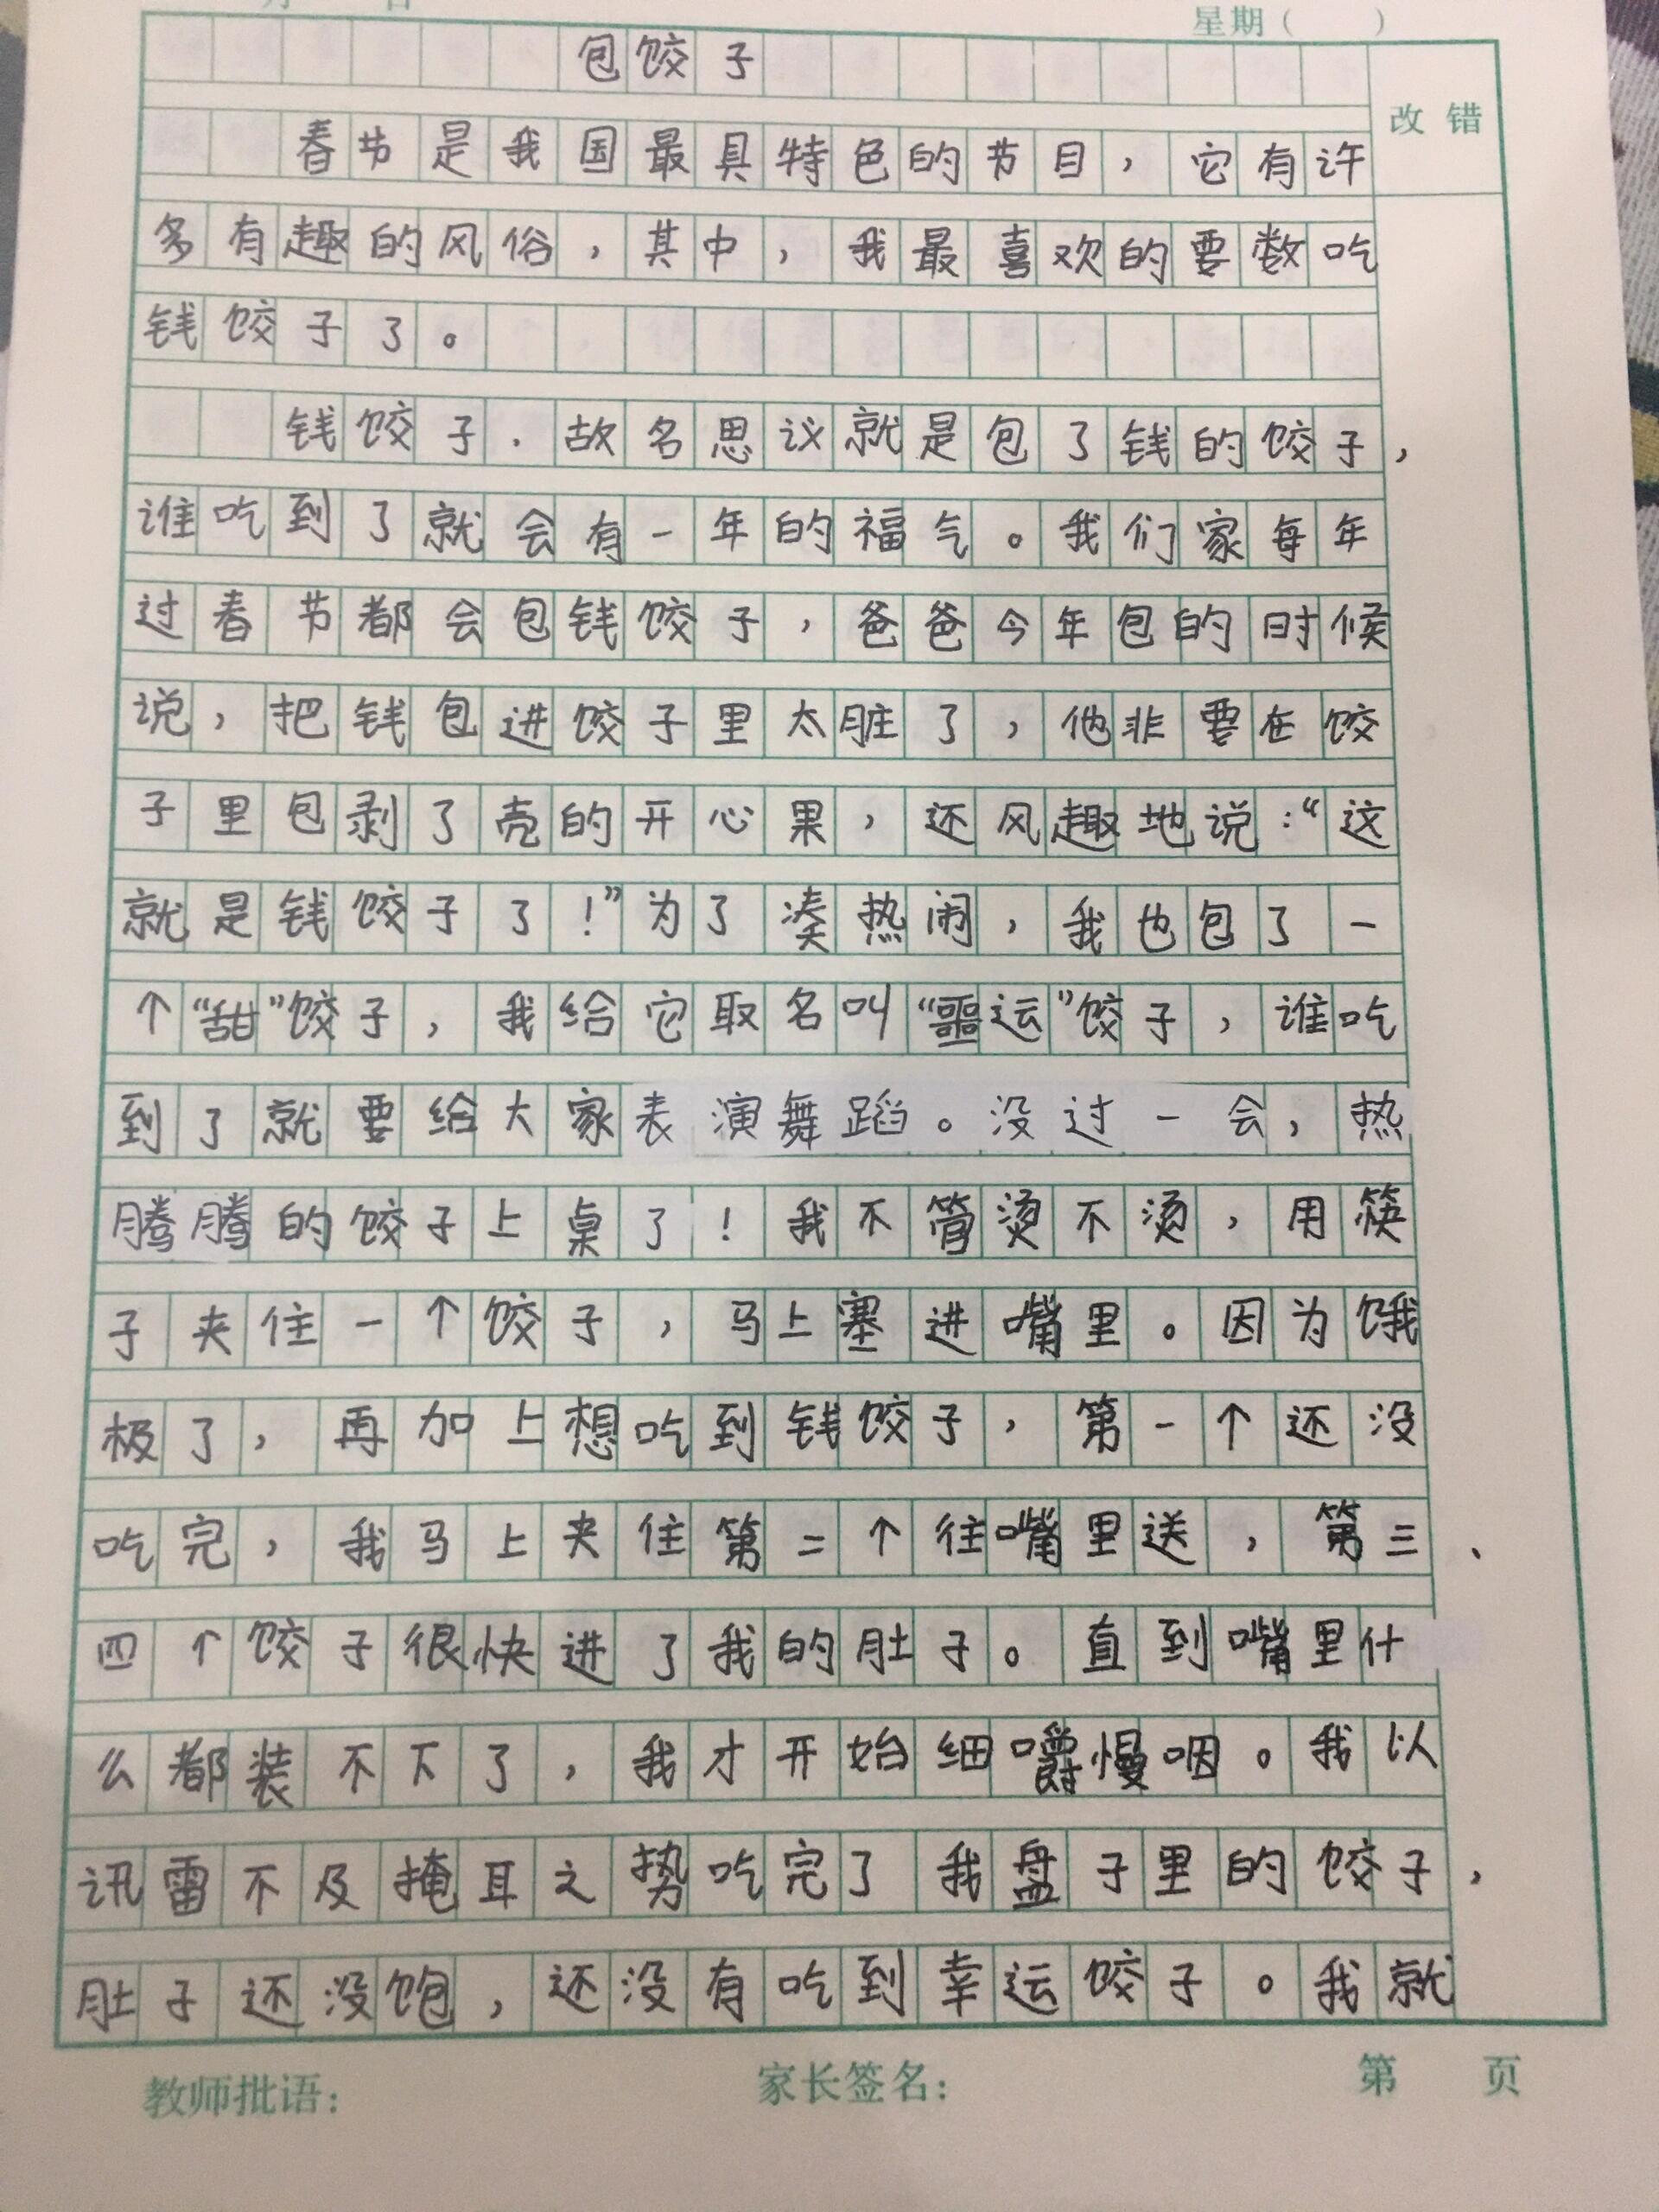 星期（ ）
包饺子
改错
春节是我国最具特色的节目，它有许
多有趣的风俗，其中，我最喜欢的要数吃
钱饺子了。
钱饺子.故名思议就是包了钱的饺子，
谁吃到了就会有一年的福气。我们家每年
过春节都会包钱饺子，爸爸今年包的时候
说，把钱包进饺子里太脏了，他非要在饺
子里包剥了壳的开心果，还风趣地说：“这
就是钱饺子了！”为了凑热闹，我也包了一
个“甜”饺子，我给它取名叫“噩运”饺子，谁吃
到了就要给大家表演舞蹈。没过一会，热
腾腾的饺子上桌了！我不管烫不烫，用筷
子夹住一个饺子，马上塞进嘴里。因为饿
极了，再加上想吃到钱饺子，第一个还没
吃完，我马上夹住第二个往嘴里送，第三、
四个饺子很快进了我的肚子。直到嘴里什
么都装不下了，我才开始细嚼慢咽。我以
讯雷不及掩耳之势吃完了我盘子里的饺子，
肚子还没饱，还没有吃到幸运饺子。我就
教师批语： 家长签名： 第 页